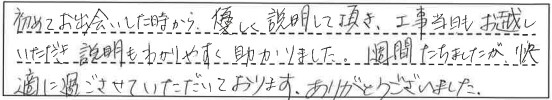 初めてお出会いした時から、優しく説明して頂き、工事当日もお越し
いただき説明もわかりやすく助かりました。1週間たちましたが、快
適に過ごさせていただいております。ありがとうございました。